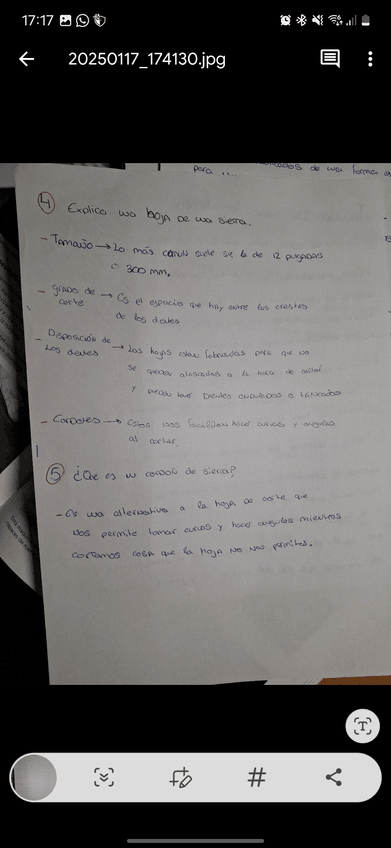 17:17
20250117_174130.jpg
para ...
de una forma
4 Explica una hoja de una sierra.
- Tamaño → Lo más común suele ser la de 12 pulgadas
o 300 mm.
- Grado de corte → Es el espacio que hay entre las crestas
de los dientes
- Disposición de los dientes → Las hojas están fabricadas para que no
se queden atascadas a la hora de cortar
y pueden tener dientes ondulados o
- Cordones → Estos nos facilitan hacer curvas y ángulos
al cortar.
5 ¿Que es un cordón de sierra?
- Es una alternativa a la hoja de corte que
nos permite tomar curvas y hacer angulos mientras
cortamos cosa que la hoja no nos permite.
T
#